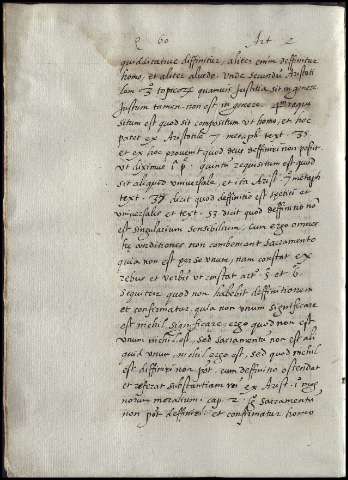 q 60 Art 2
quidditative diffinitur, aliter enim deffinitur
homo, et aliter albedo. Unde secundũ Aristoti
lem topicoꝝ quamvis justitia sit in genere
justum tamen non est in genere. requi
situm est quod sit compositum ut homo, et hoc
patet ex Aristotile 7 metaph. text.
et ex hoc provenit quod deus deffiniri non possit
ut diximus quintũ requisitum est quod
sit aliquid universale, et ita Arist. metaph
text. dicit quod deffinitio est speciei et
universalis et text. 53 dicit quod deffinitio nõ
est singularium sensibilium, cum ergo omnes
hę conditiones non conveniant sacramento
quia non est per se unum, nam constat ex
rebus et verbis ut constat art. 5 et 6.
sequitur quod non habebit deffinitionem
et confirmatur, quia non unum significare
est nichil significare, ergo quod non est
unum nichil est, sed sacramentũ non est ali
quid unum, nichil ergo est, sed quod nichil
est diffiniri non põt, cum deffinitio ostendat
et referat substantiam rei ex Arist.
norum moralium, cap. 2. sacramentũ
non põt deffiniri, et confirmatur homo